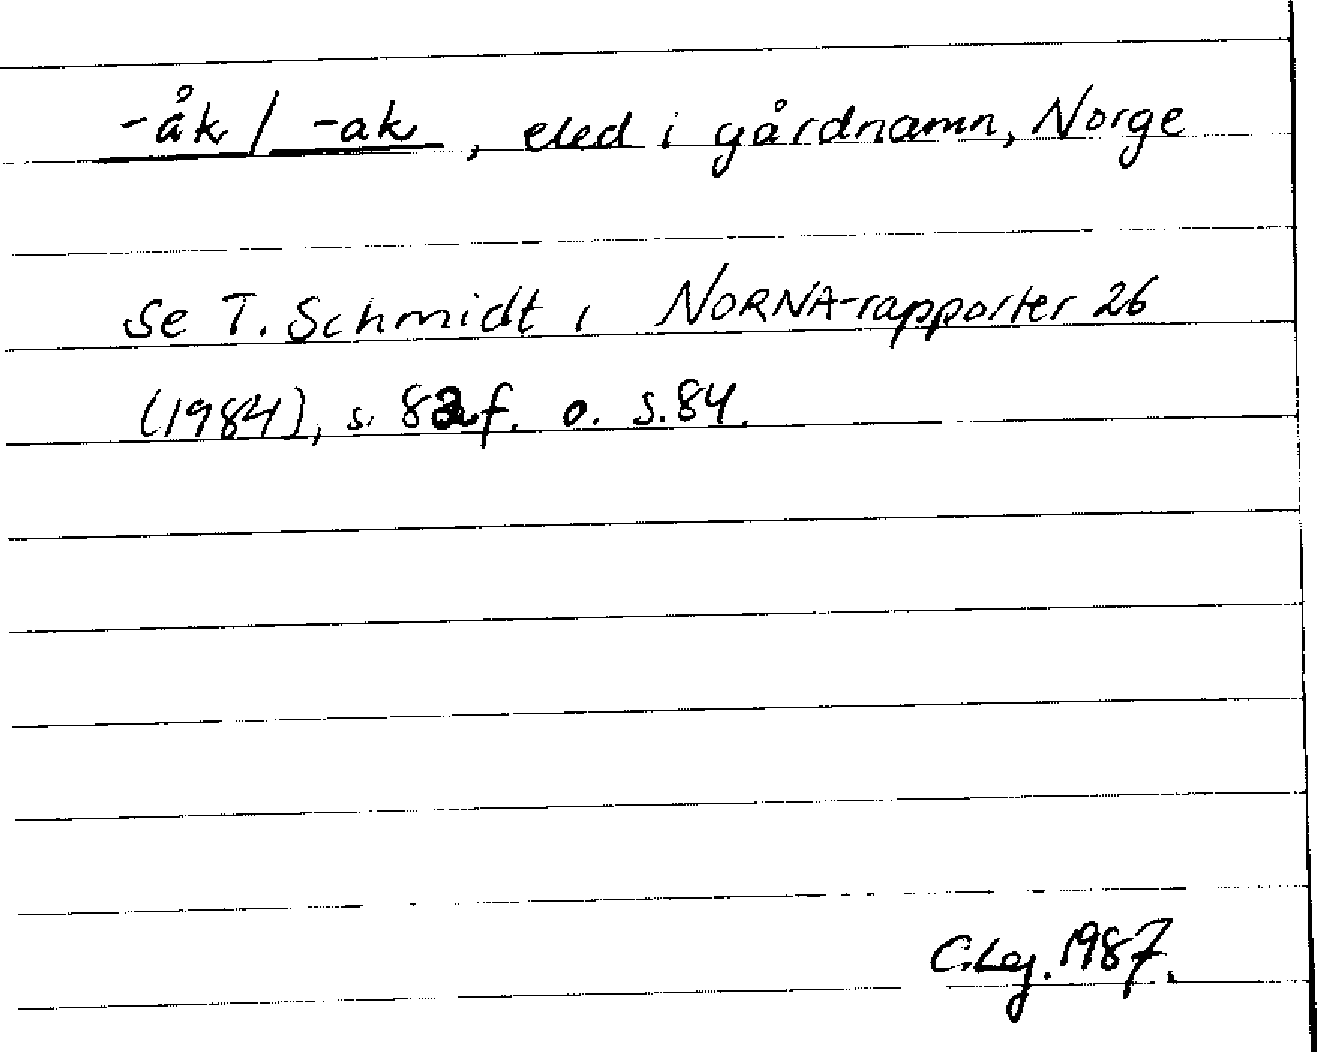 -åk / -ak, eled i gårdnamn, Norge
Se T. Schmidt i NORNA-rapporter 26
(1984), s. 82f. o. s. 84.
C.Lej. 1987.